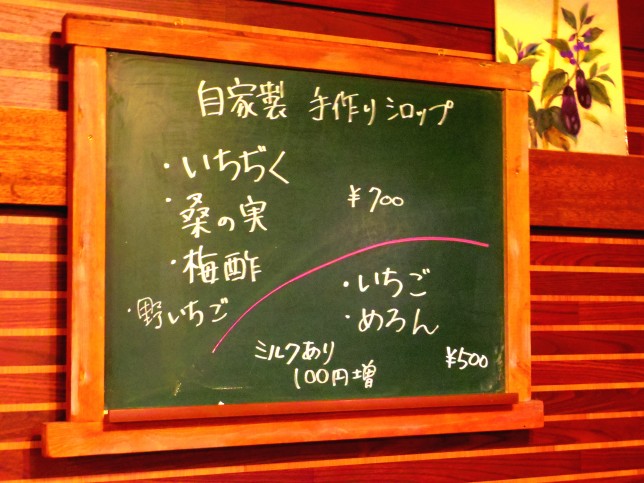 自家製 手作りシロップ
・いちぢく
・桑の実
¥700
・梅酢
・野いちご
・いちご
・めろん
¥500
ミルクあり
100円増